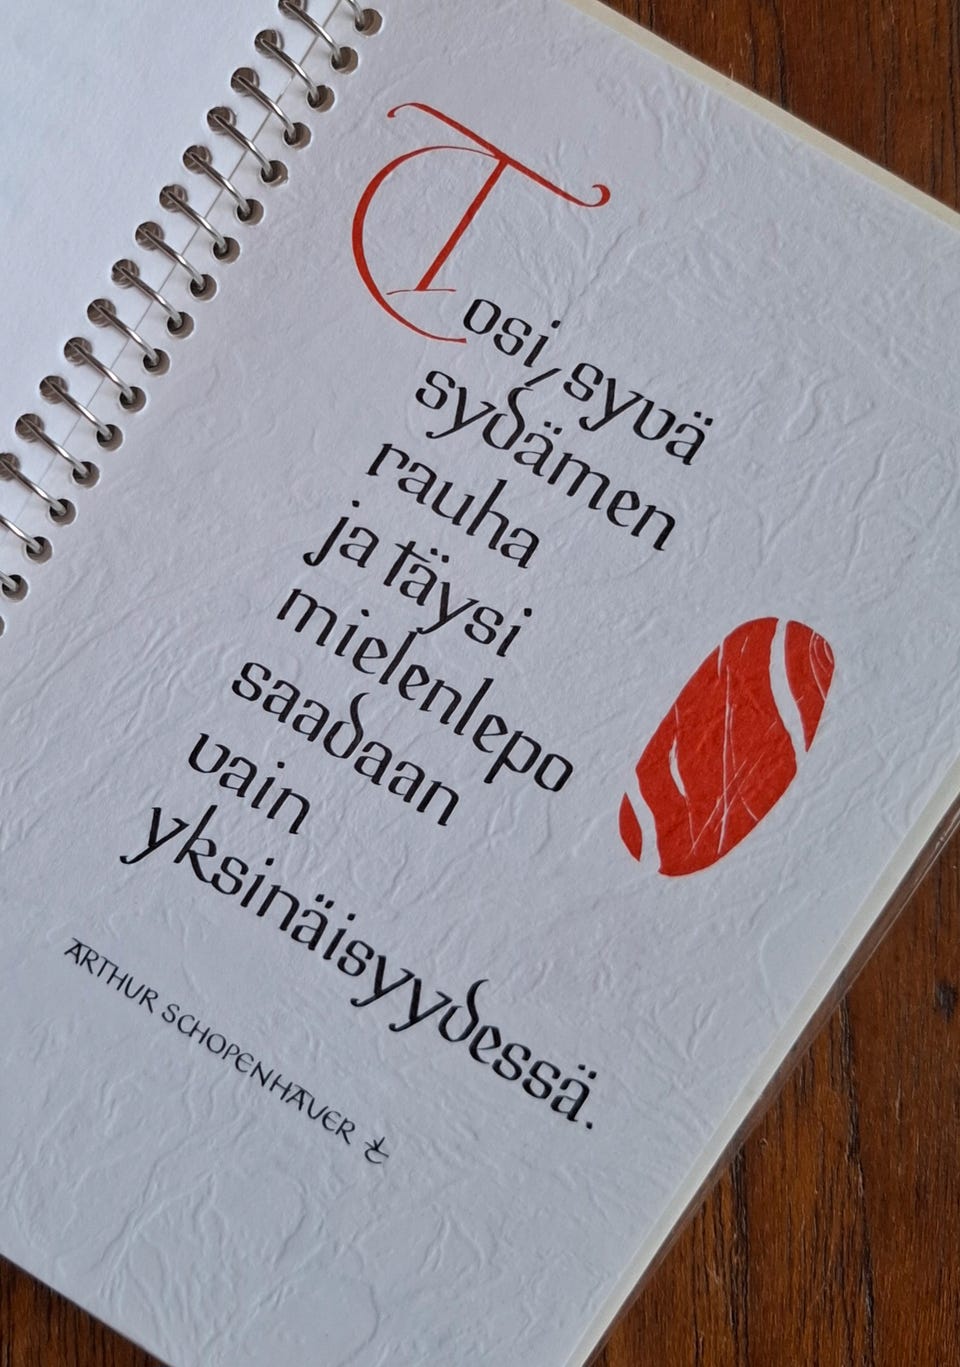 Tosi, syvä
sydämen
rauha
ja täysi
mielenlepo
saadaan
vain
yksinäisyydessä.
ARTHUR SCHOPENHAUER